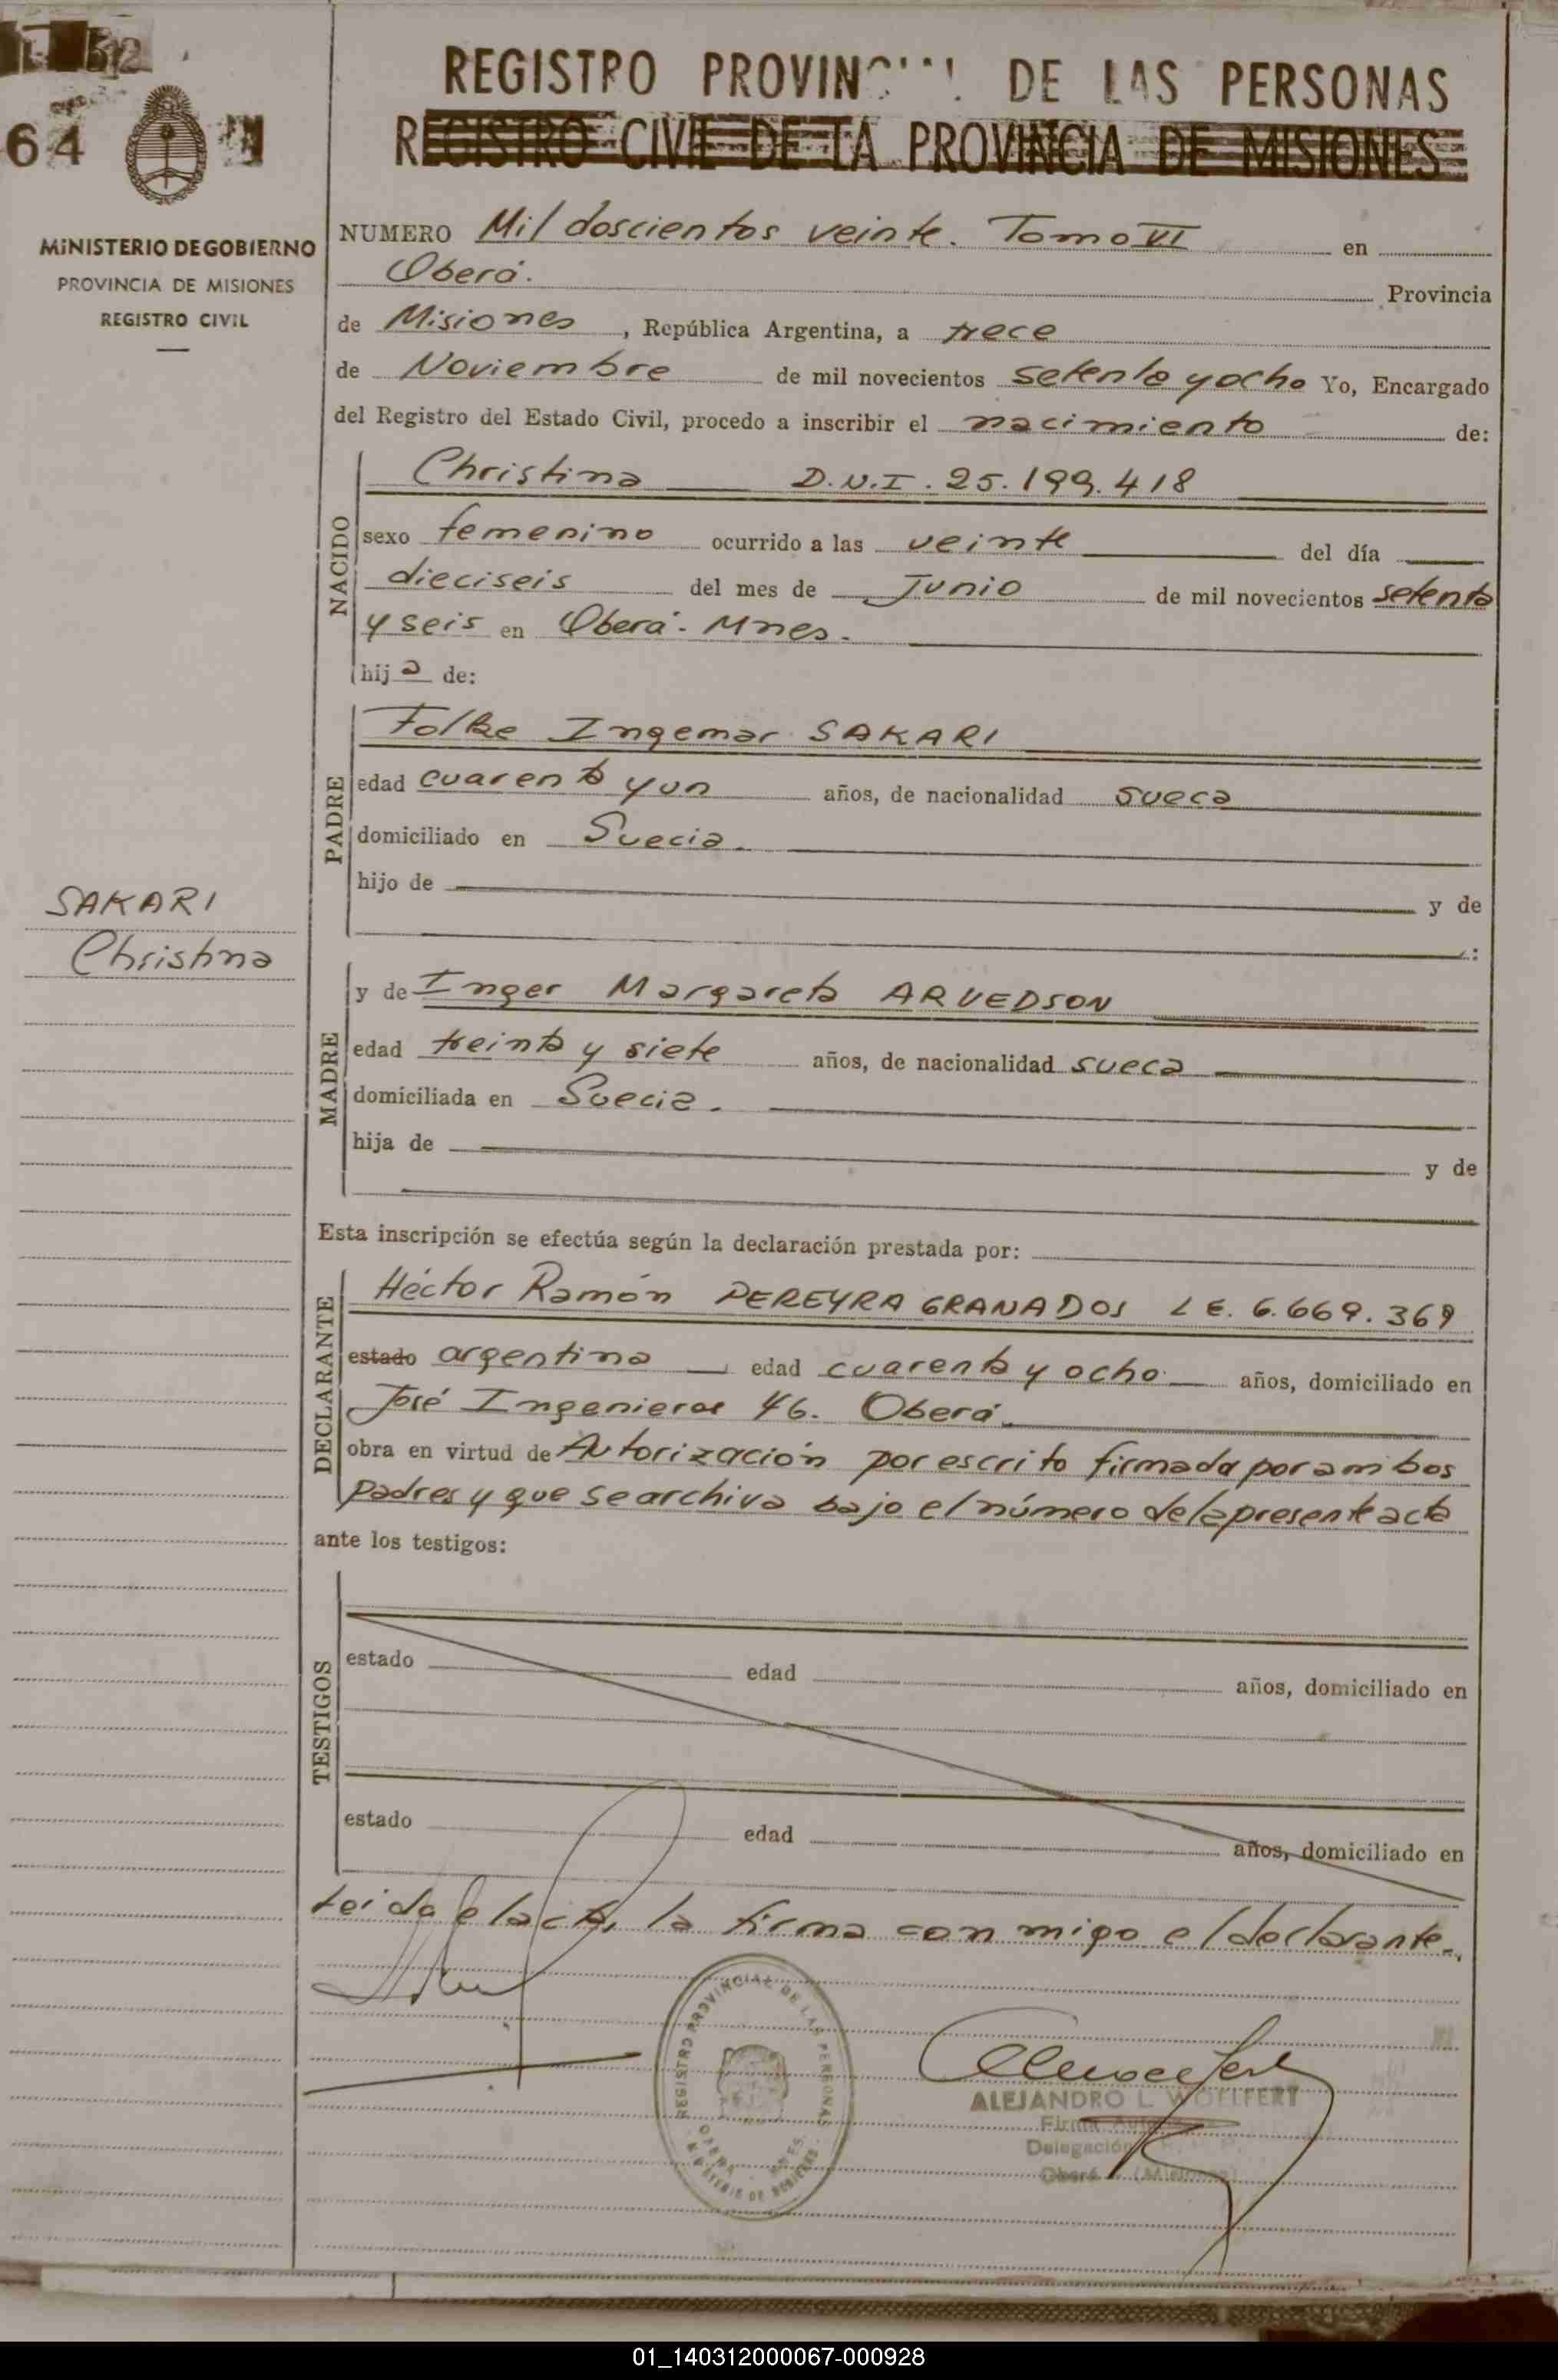 REGISTRO PROVINCIAL DE LAS PERSONAS
REGISTRO CIVIL DE LA PROVINCIA DE MISIONES
64
MINISTERIO DE GOBIERNO
PROVINCIA DE MISIONES
REGISTRO CIVIL
NUMERO Mil doscientos veinte. Tomo VI en
Oberá. Provincia
de Misiones, República Argentina, a trece
de Noviembre de mil novecientos setenta y ocho Yo, Encargado
del Registro del Estado Civil, procedo a inscribir el nacimiento de:
NACIDO
Christina D.N.I. 25.199.418
sexo femenino ocurrido a las veinte del día
dieciseis del mes de Junio de mil novecientos setenta
y seis en Oberá - Mnes.
hija de:
PADRE
Folke Ingemar SAKARI
edad cuarenta y un años, de nacionalidad sueca
domiciliado en Suecia.
hijo de y de
SAKARI
Christina
MADRE
y de Inger Margareta ARVEDSON
edad treinta y siete años, de nacionalidad sueca
domiciliada en Suecia.
hija de y de
Esta inscripción se efectúa según la declaración prestada por:
DECLARANTE
Héctor Ramón PEREYRA GRANADOS L E. 6.669.369
estado argentino edad cuarenta y ocho años, domiciliado en
José Ingenieros 46. Oberá.
obra en virtud de Autorización por escrito firmada por ambos
padres y que se archiva bajo el número de la presente acta
ante los testigos:
TESTIGOS
estado edad años, domiciliado en
estado edad años, domiciliado en
Leida el acta, la firma conmigo el declarante.
REGISTRO PROVINCIAL DE LAS PERSONAS
OBERA - MNES.
MINISTERIO DE GOBIERNO
ALEJANDRO L. WOELFERT
Firma
Delegación
Oberá (Misiones)
01_140312000067-000928